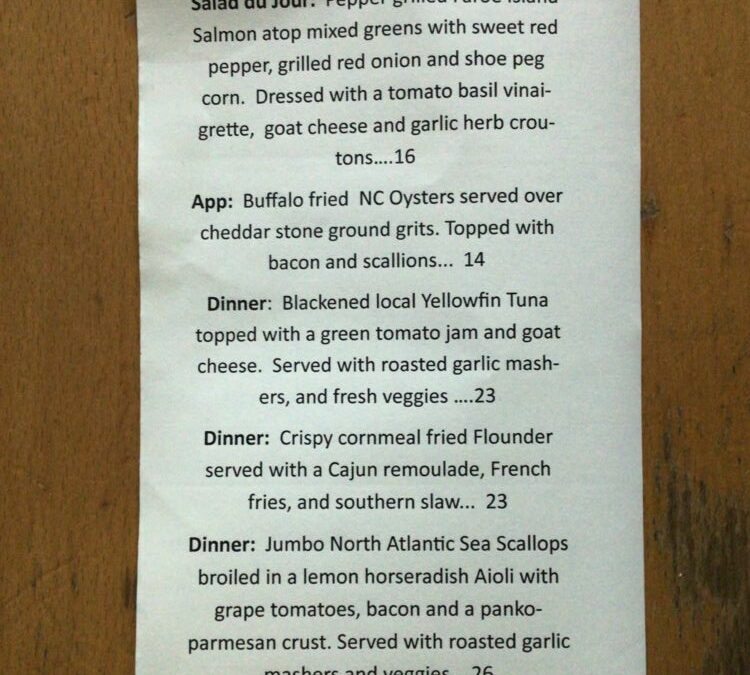 Salad du Jour: Pepper grilled Faroe Island
Salmon atop mixed greens with sweet red
pepper, grilled red onion and shoe peg
corn. Dressed with a tomato basil vinai-
grette, goat cheese and garlic herb crou-
tons....16
App: Buffalo fried NC Oysters served over
cheddar stone ground grits. Topped with
bacon and scallions... 14
Dinner: Blackened local Yellowfin Tuna
topped with a green tomato jam and goat
cheese. Served with roasted garlic mash-
ers, and fresh veggies ....23
Dinner: Crispy cornmeal fried Flounder
served with a Cajun remoulade, French
fries, and southern slaw... 23
Dinner: Jumbo North Atlantic Sea Scallops
broiled in a lemon horseradish Aioli with
grape tomatoes, bacon and a panko-
parmesan crust. Served with roasted garlic
mashers and veggies....26